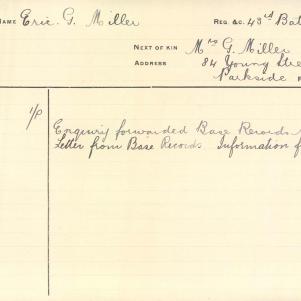 NAME Eric. G. Miller REG. &C. 43rd Bat
NEXT OF KIN Mrs G. Miller
ADDRESS 84 Young Stre
Parkside
1/P
Enquiry forwarded Base Records
Letter from Base Records Information f